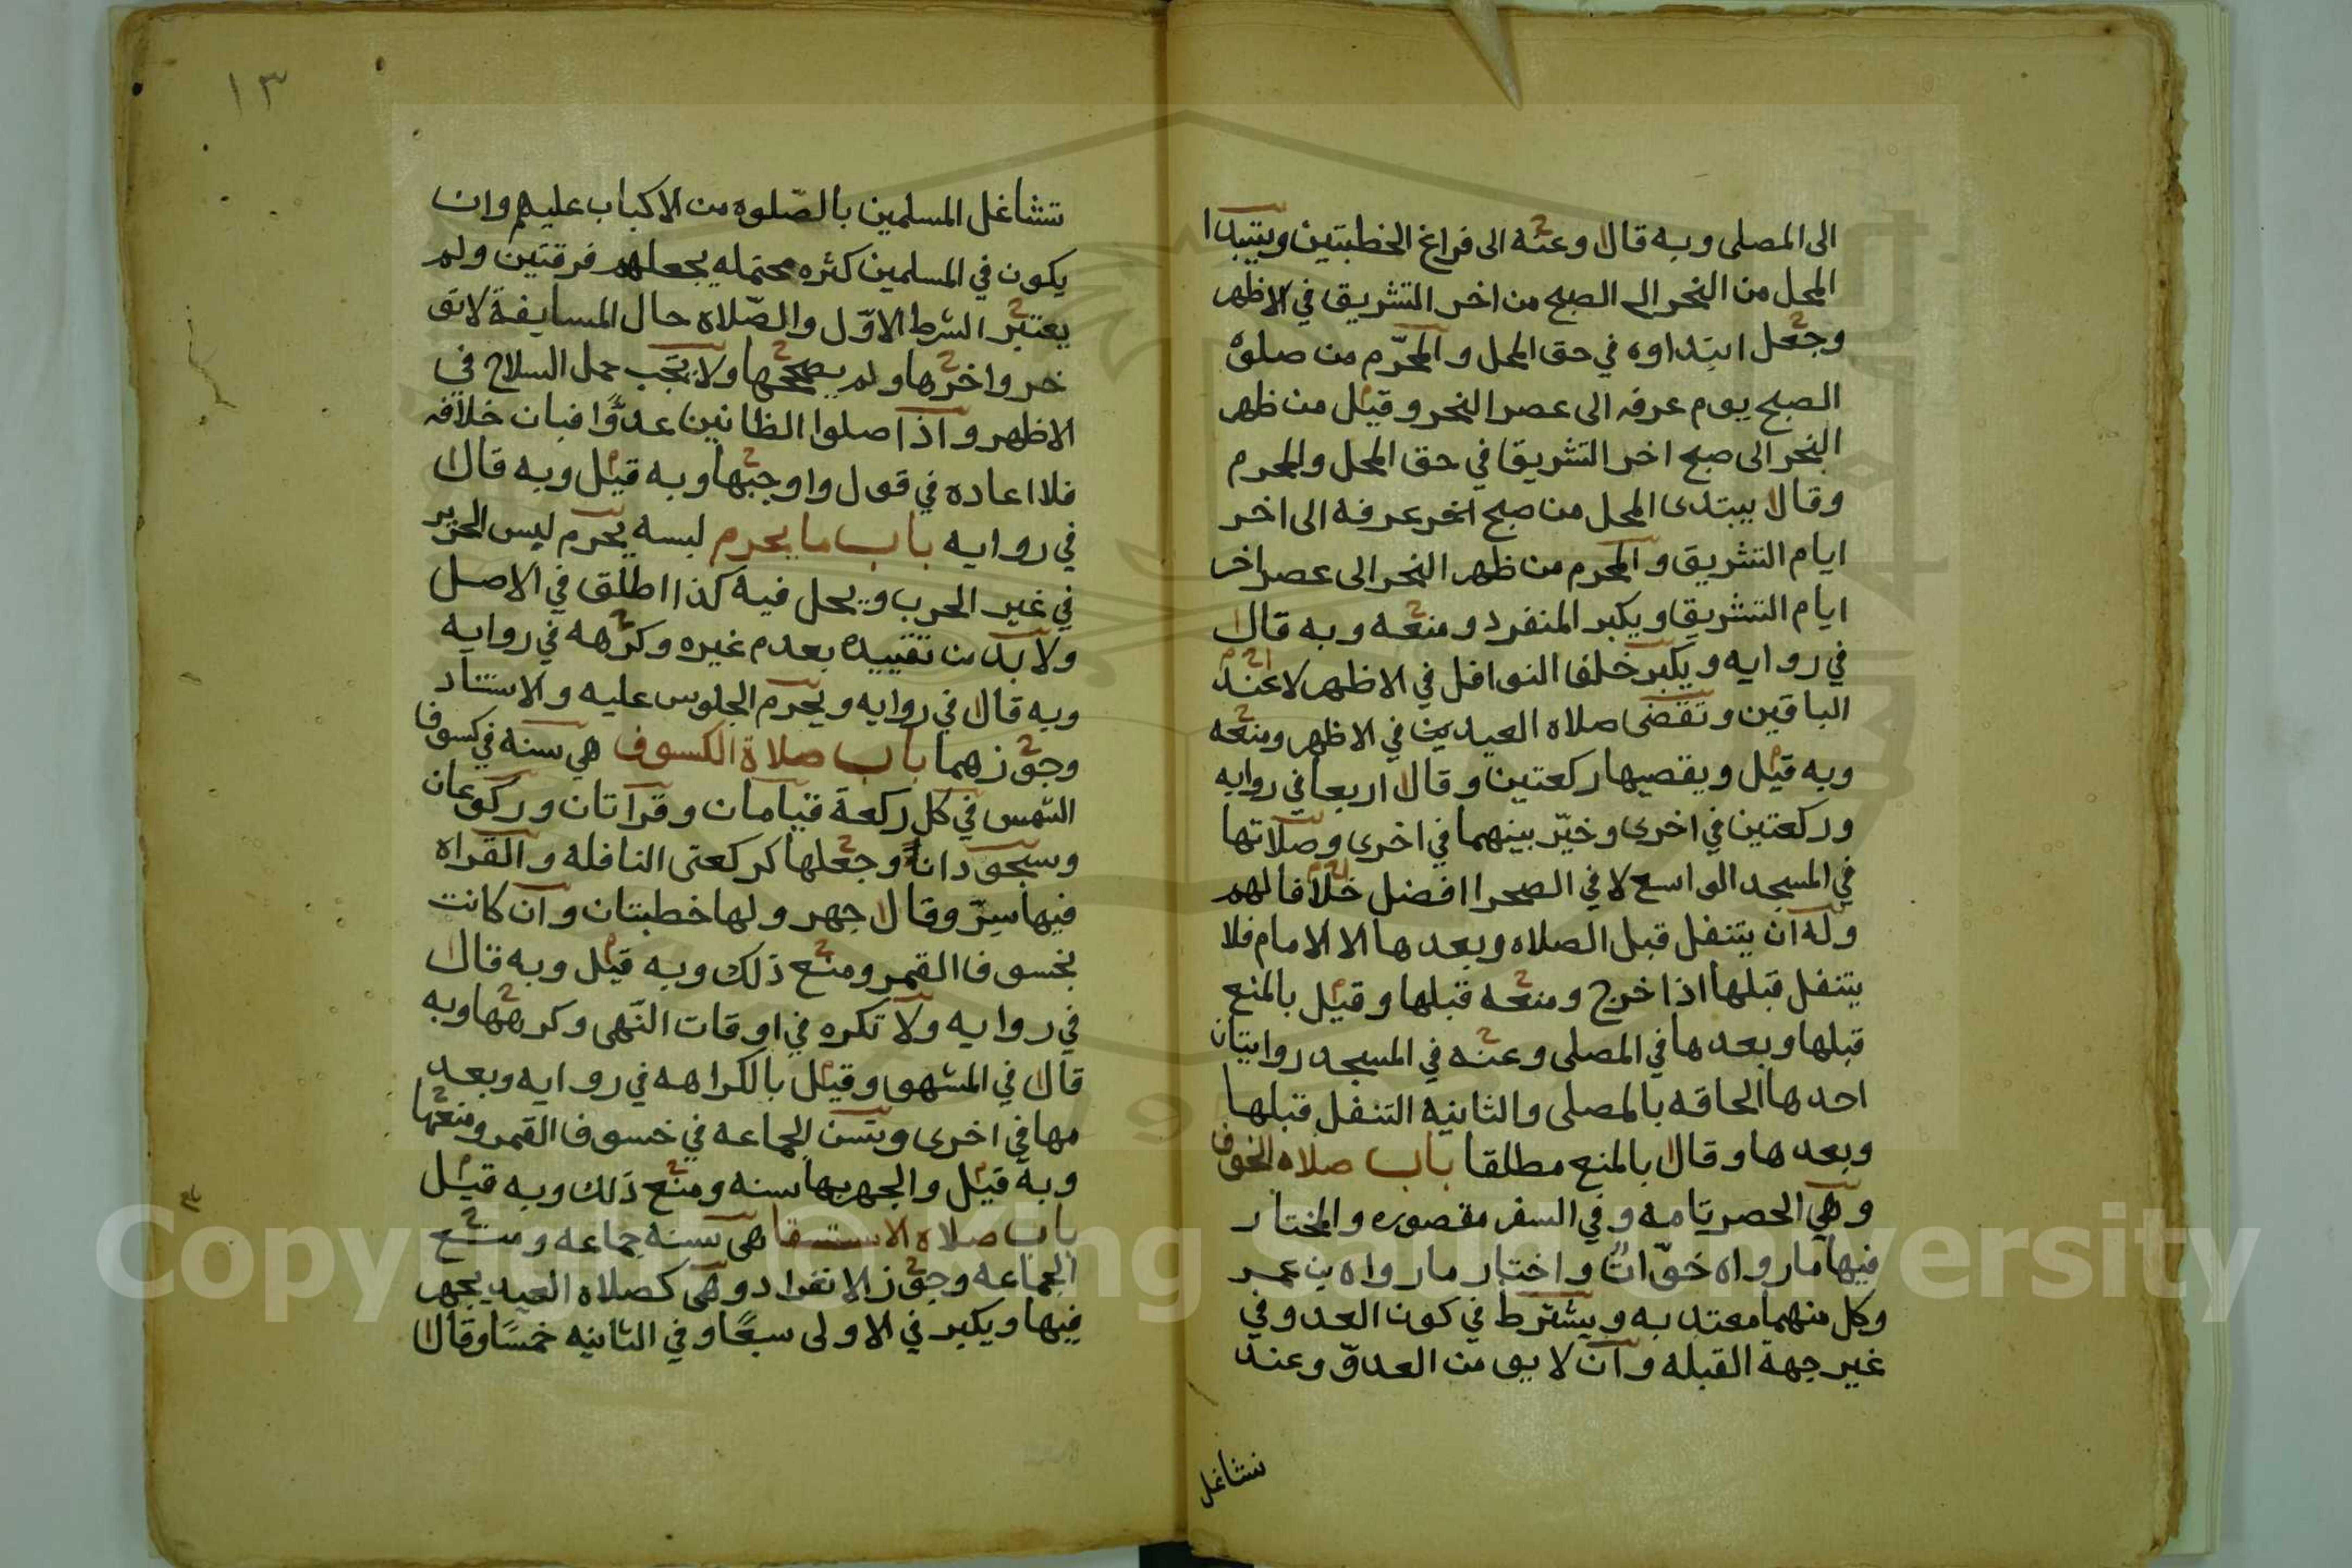 الى المصلى وبه قال وعنه الى فراغ الخطبتين ويتبدا
المحل من النحر الى الصبح من اخر التشريق في الاظهر
وجعل ابتداوه في حق المحل والمحرّم من صلوة
الصبح يوم عرفه الى عصر النحر وقيل من ظهر
النحر الى صبح اخر التشريق في حق المحل والمحرم
وقال يبتدى المحل من صبح اخر عرفة الى اخر
ايام التشريق والمحرم من ظهر النحر الى عصر اخر
ايام التشريق ويكبر المنفرد ومنعه وبه قال
في روايه ويكبر خلف النوافل في الاظهر لا عند
الباقين وتقضى صلاه العيدين في الاظهر ومنعه
وبه قيل ويقضيها ركعتين وقال اربعا في روايه
وركعتين في اخرى وخيّر بينهما في اخرى وصلاتها
في المسجد الواسع لا في الصحرا افضل خلافا لهم
وله ان يتنفل قبل الصلاه وبعدها الا الامام فلا
يتنفل قبلها اذا خرج ومنعه قبلها وقيل بالمنع
قبلها وبعدها في المصلى وعنه في المسجد روايتان
احدها الحاقه بالمصلى والثانيه التنفل قبلها
وبعدها وقال بالمنع مطلقا باب صلاه الخوف
وهي الحضر تامه وفي السفر مقصوره والمختار
فيها مارواه خوّات واختار مارواه بن عمر
وكل منهما معتد به ويشترط في كون العدو في
غير جهة القبله وان لا يومن العدوّ وعند
تشاغل
١٣
تشاغل المسلمين بالصّلوه من الاكباب عليهم وان
يكون في المسلمين كثره محتمله يجعلهم فرقتين ولم
يعتبر الشرط الاوّل والصّلاة حال المسايفة لا تو
خر واخرها ولم يصححها ولا يجب حمل السلاح في
الاظهر واذا صلوا الظانين عدوًّا فبان خلافه
فلا اعاده في قول واوجبها وبه قيل وبه قال
في روايه باب ما يحرم لبسه يحرم لبس الحرير
في غير الحرب ويحل فيه كذا اطلق في الاصل
ولا بد من تقييده بعدم غيره وكرهه في روايه
وبه قال في روايه ويحرم الجلوس عليه والاستناد
وجوّزهما باب صلاة الكسوف هي سنه في كسوف
الشمس في كل ركعة قيامان وقراتان وركوعان
وسجودان وجعلها كركعتى النافله والقراه
فيها سرّ وقال جهر ولها خطبتان وان كانت
بخسوف القمر ومنع ذلك وبه قيل وبه قال
في روايه ولا تكره في اوقات النّهى وكرهها وبه
قال في المشهو وقيل بالكراهه في روايه وبعد
مها في اخرى وتسن الجماعه في خسوف القمر ومنعها
وبه قيل والجهر بها سنه ومنع ذلك وبه قيل
باب صلاه الاستسقا هى سنه جماعه ومنع
الجماعه وجوّز الانفراد وهى كصلاه العيد يجهر
فيها ويكبر في الاولى سبعًا وفي الثانيه خمسًا وقال
Copyright © King Saud University